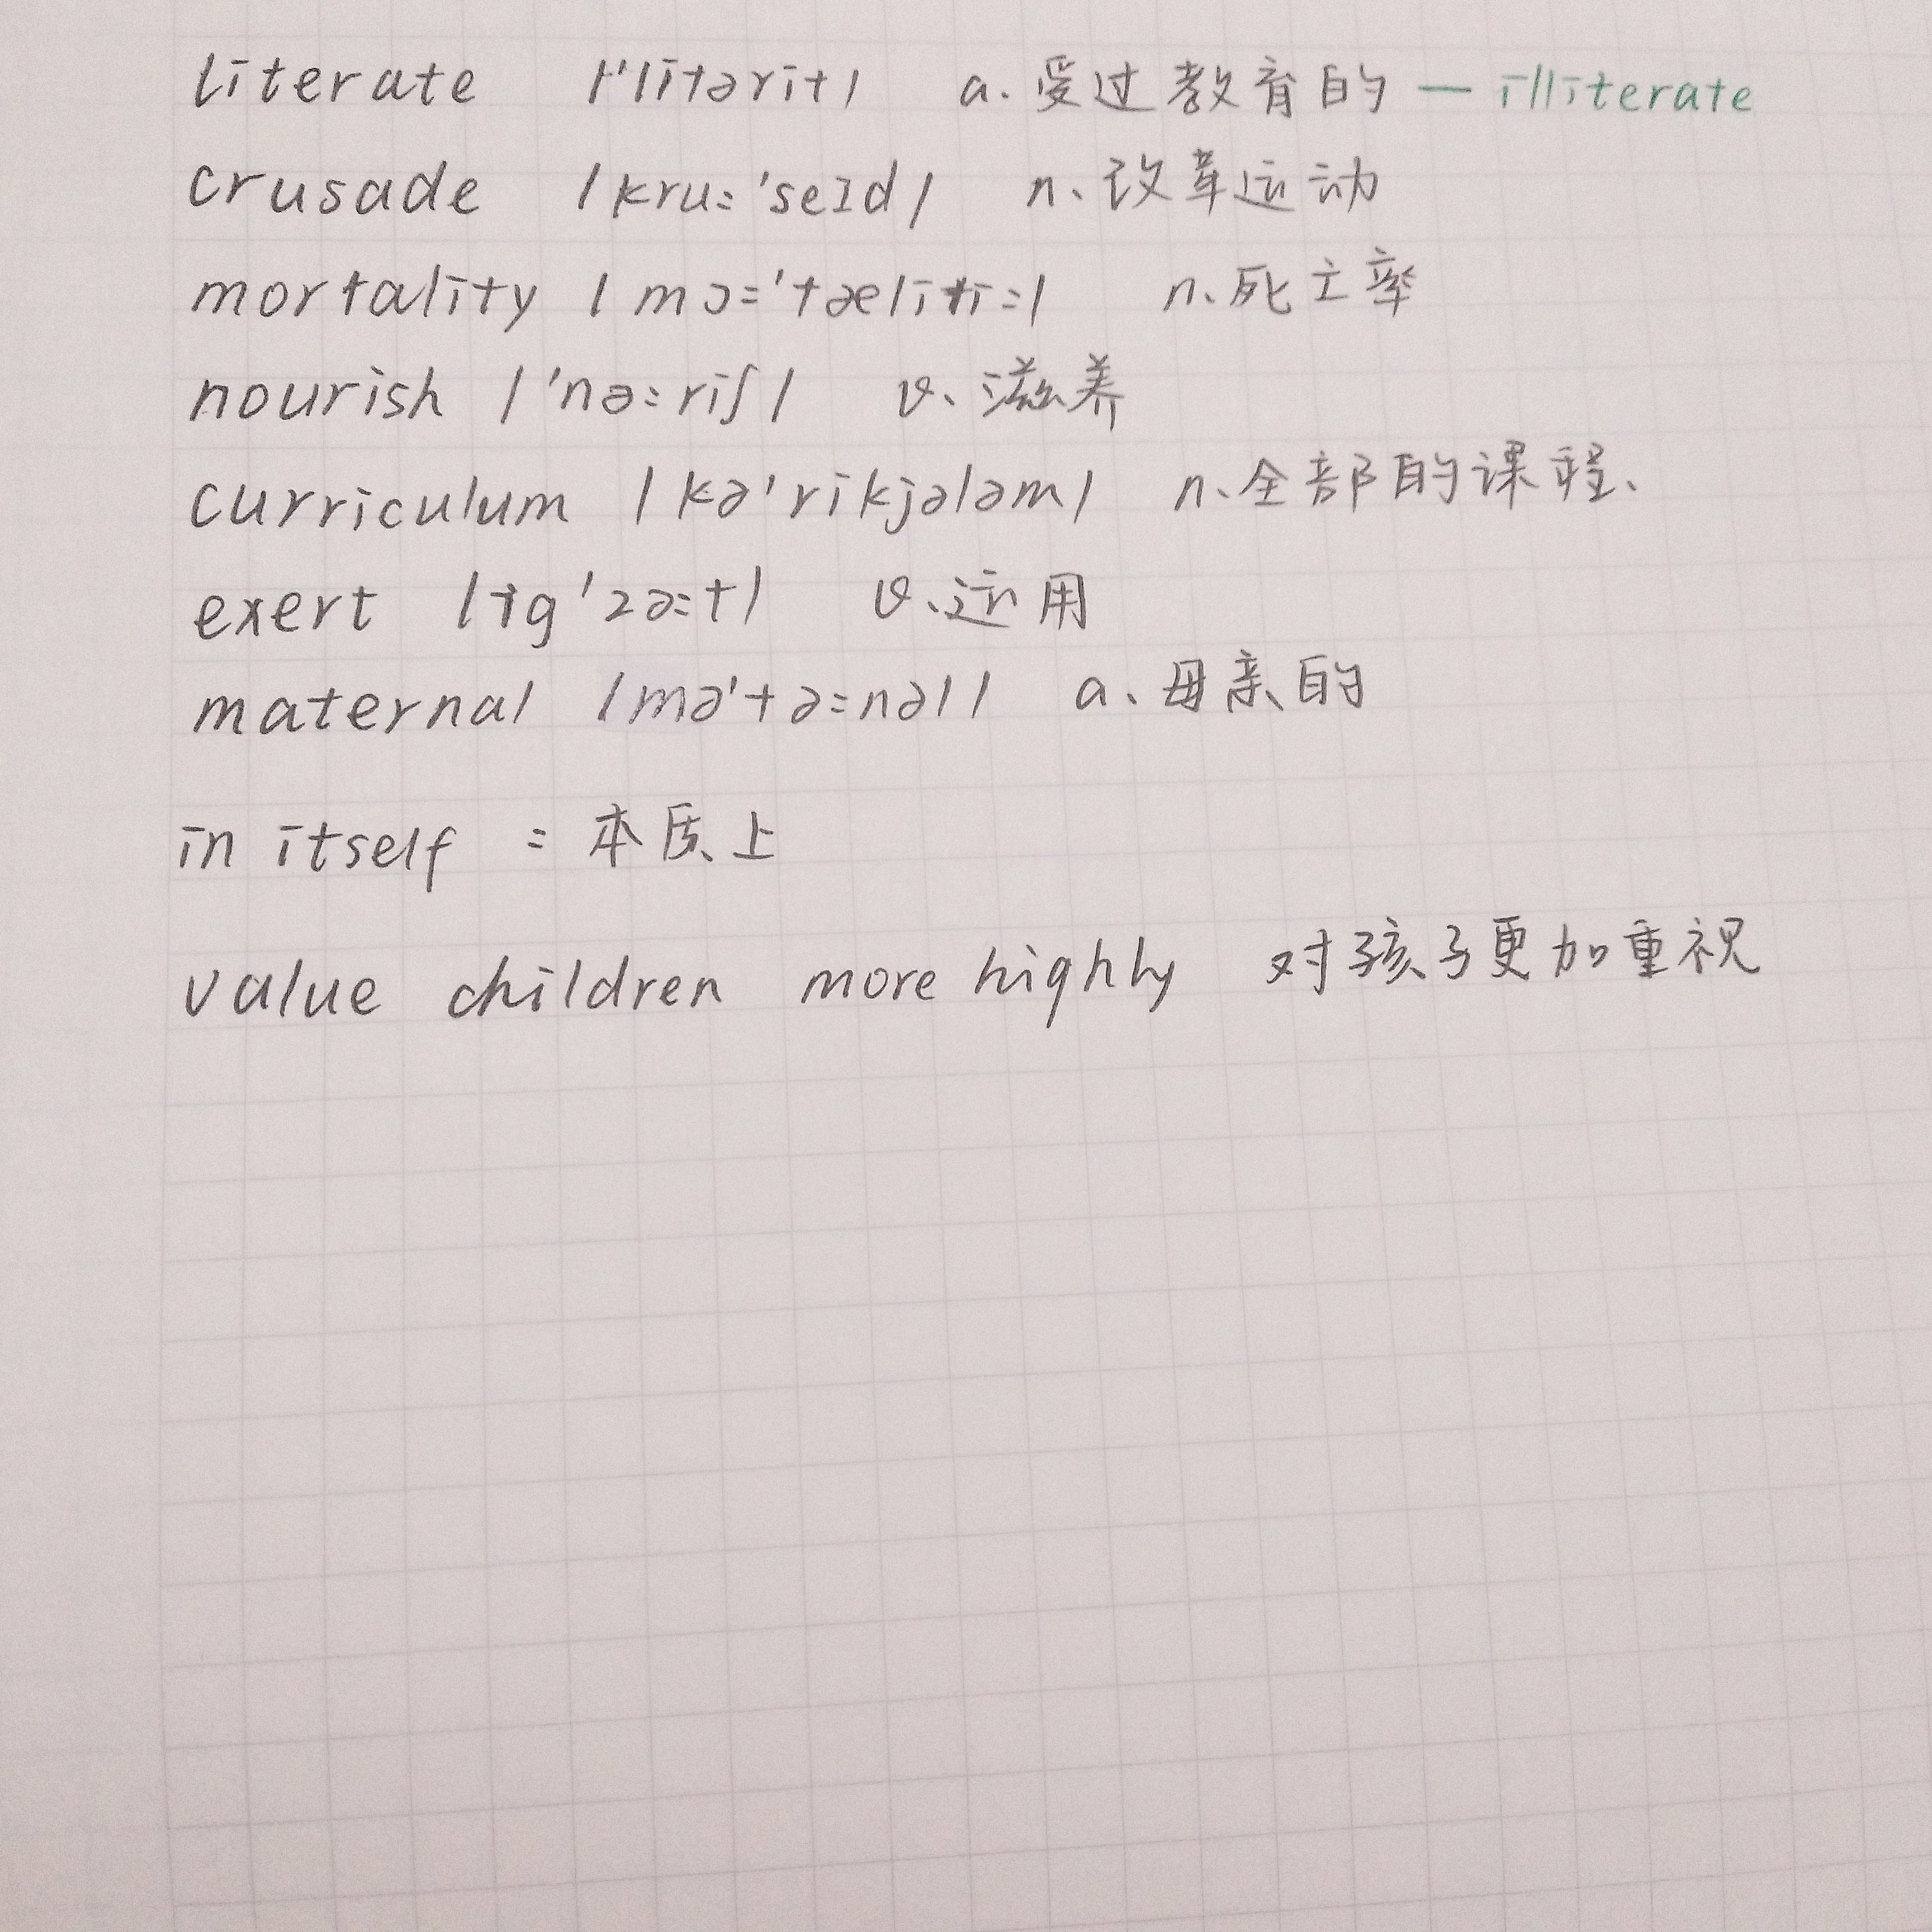 literate /'litərit/ a. 受过教育的 — illiterate
crusade /kru:'seɪd/ n. 改革运动
mortality /mɔ:'tæliti:/ n. 死亡率
nourish /'nə:riʃ/ v. 滋养
curriculum /kə'rikjələm/ n. 全部的课程、
exert /ig'zə:t/ v. 运用
maternal /mə'tə:nəl/ a. 母亲的
in itself = 本质上
value children more highly 对孩子更加重视